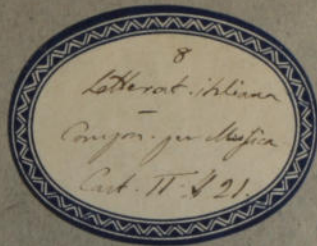 8
Letterat. italiana
—
Compon. per Musica
Cart. II. § 21.